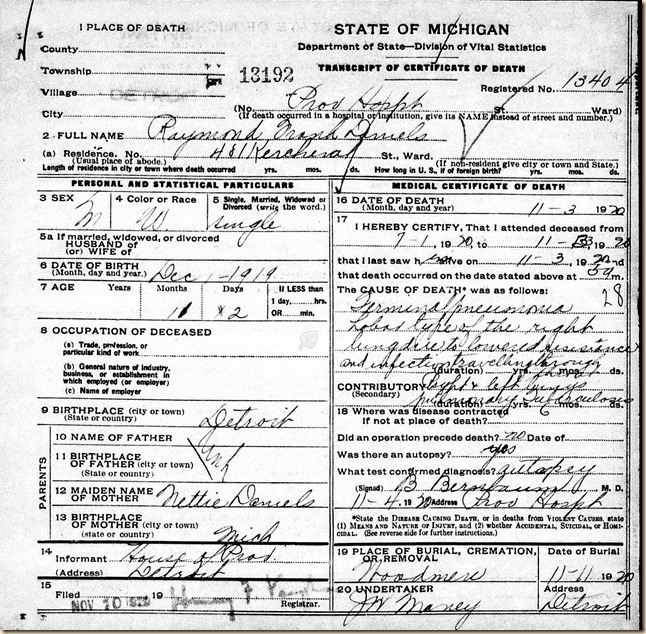 1 PLACE OF DEATH
County
Township
Village
City
DETROIT
13192
STATE OF MICHIGAN
Department of State—Division of Vital Statistics
TRANSCRIPT OF CERTIFICATE OF DEATH
Registered No. 13404
(No. Prov Hospt St. Ward)
(If death occurred in a hospital or institution, give its NAME instead of street and number.)
2 FULL NAME Raymond Daniels
(a) Residence. No. 481 Kercheval St., Ward.
(Usual place of abode.) (If non-resident give city or town and State.)
Length of residence in city or town where death occurred yrs. mos. ds. How long in U. S., if of foreign birth? yrs. mos. ds.
PERSONAL AND STATISTICAL PARTICULARS
3 SEX M
4 Color or Race W
5 Single, Married, Widowed or Divorced (write the word.) Single
5a If married, widowed, or divorced
HUSBAND of
(or) WIFE of
6 DATE OF BIRTH
(Month, day and year.) Dec 1-1919
7 AGE Years Months Days
11 2
If LESS than
1 day,....hrs.
OR....min.
8 OCCUPATION OF DECEASED
(a) Trade, profession, or
particular kind of work
(b) General nature of industry,
business, or establishment in
which employed (or employer)
(c) Name of employer
9 BIRTHPLACE (city or town)
(State or country) Detroit
PARENTS
10 NAME OF FATHER
11 BIRTHPLACE
OF FATHER (city or town)
(State or country)
Unk
12 MAIDEN NAME
OF MOTHER Nettie Daniels
13 BIRTHPLACE
OF MOTHER (city or town)
(State or country) Mich
14
Informant House of Prov.
(Address) Detroit
15
Filed NOV 20 1920 19
Registrar.
MEDICAL CERTIFICATE OF DEATH
16 DATE OF DEATH
(Month, day and year) 11-3 1920
17
I HEREBY CERTIFY, That I attended deceased from
7-1, 1920, to 11-3, 1920
that I last saw h alive on 11-3, 1920 and
that death occurred on the date stated above at m.
The CAUSE OF DEATH* was as follows:
28
Terminal pneumonia
Lobar type of the right
lung due to lowered resistance
and infection travelling through
(duration) yrs. mos. ds.
CONTRIBUTORY
(Secondary)
right & left lungs
pulmonary Tuberculosis
(duration) yrs. 6 mos. ds.
18 Where was disease contracted
if not at place of death?
Did an operation precede death? no Date of
Was there an autopsy? yes
What test confirmed diagnosis? autopsy
(Signed) B Bernbaum M. D.
11-4 1920 Address Prov Hospt
*State the DISEASE CAUSING DEATH, or in deaths from VIOLENT CAUSES, state
(1) MEANS AND NATURE OF INJURY, and (2) whether ACCIDENTAL, SUICIDAL, or HOMI-
CIDAL. (See reverse side for further instructions.)
19 PLACE OF BURIAL, CREMATION,
OR REMOVAL
Woodmere
Date of Burial
11-11 1920
20 UNDERTAKER
JW Maney
Address
Detroit